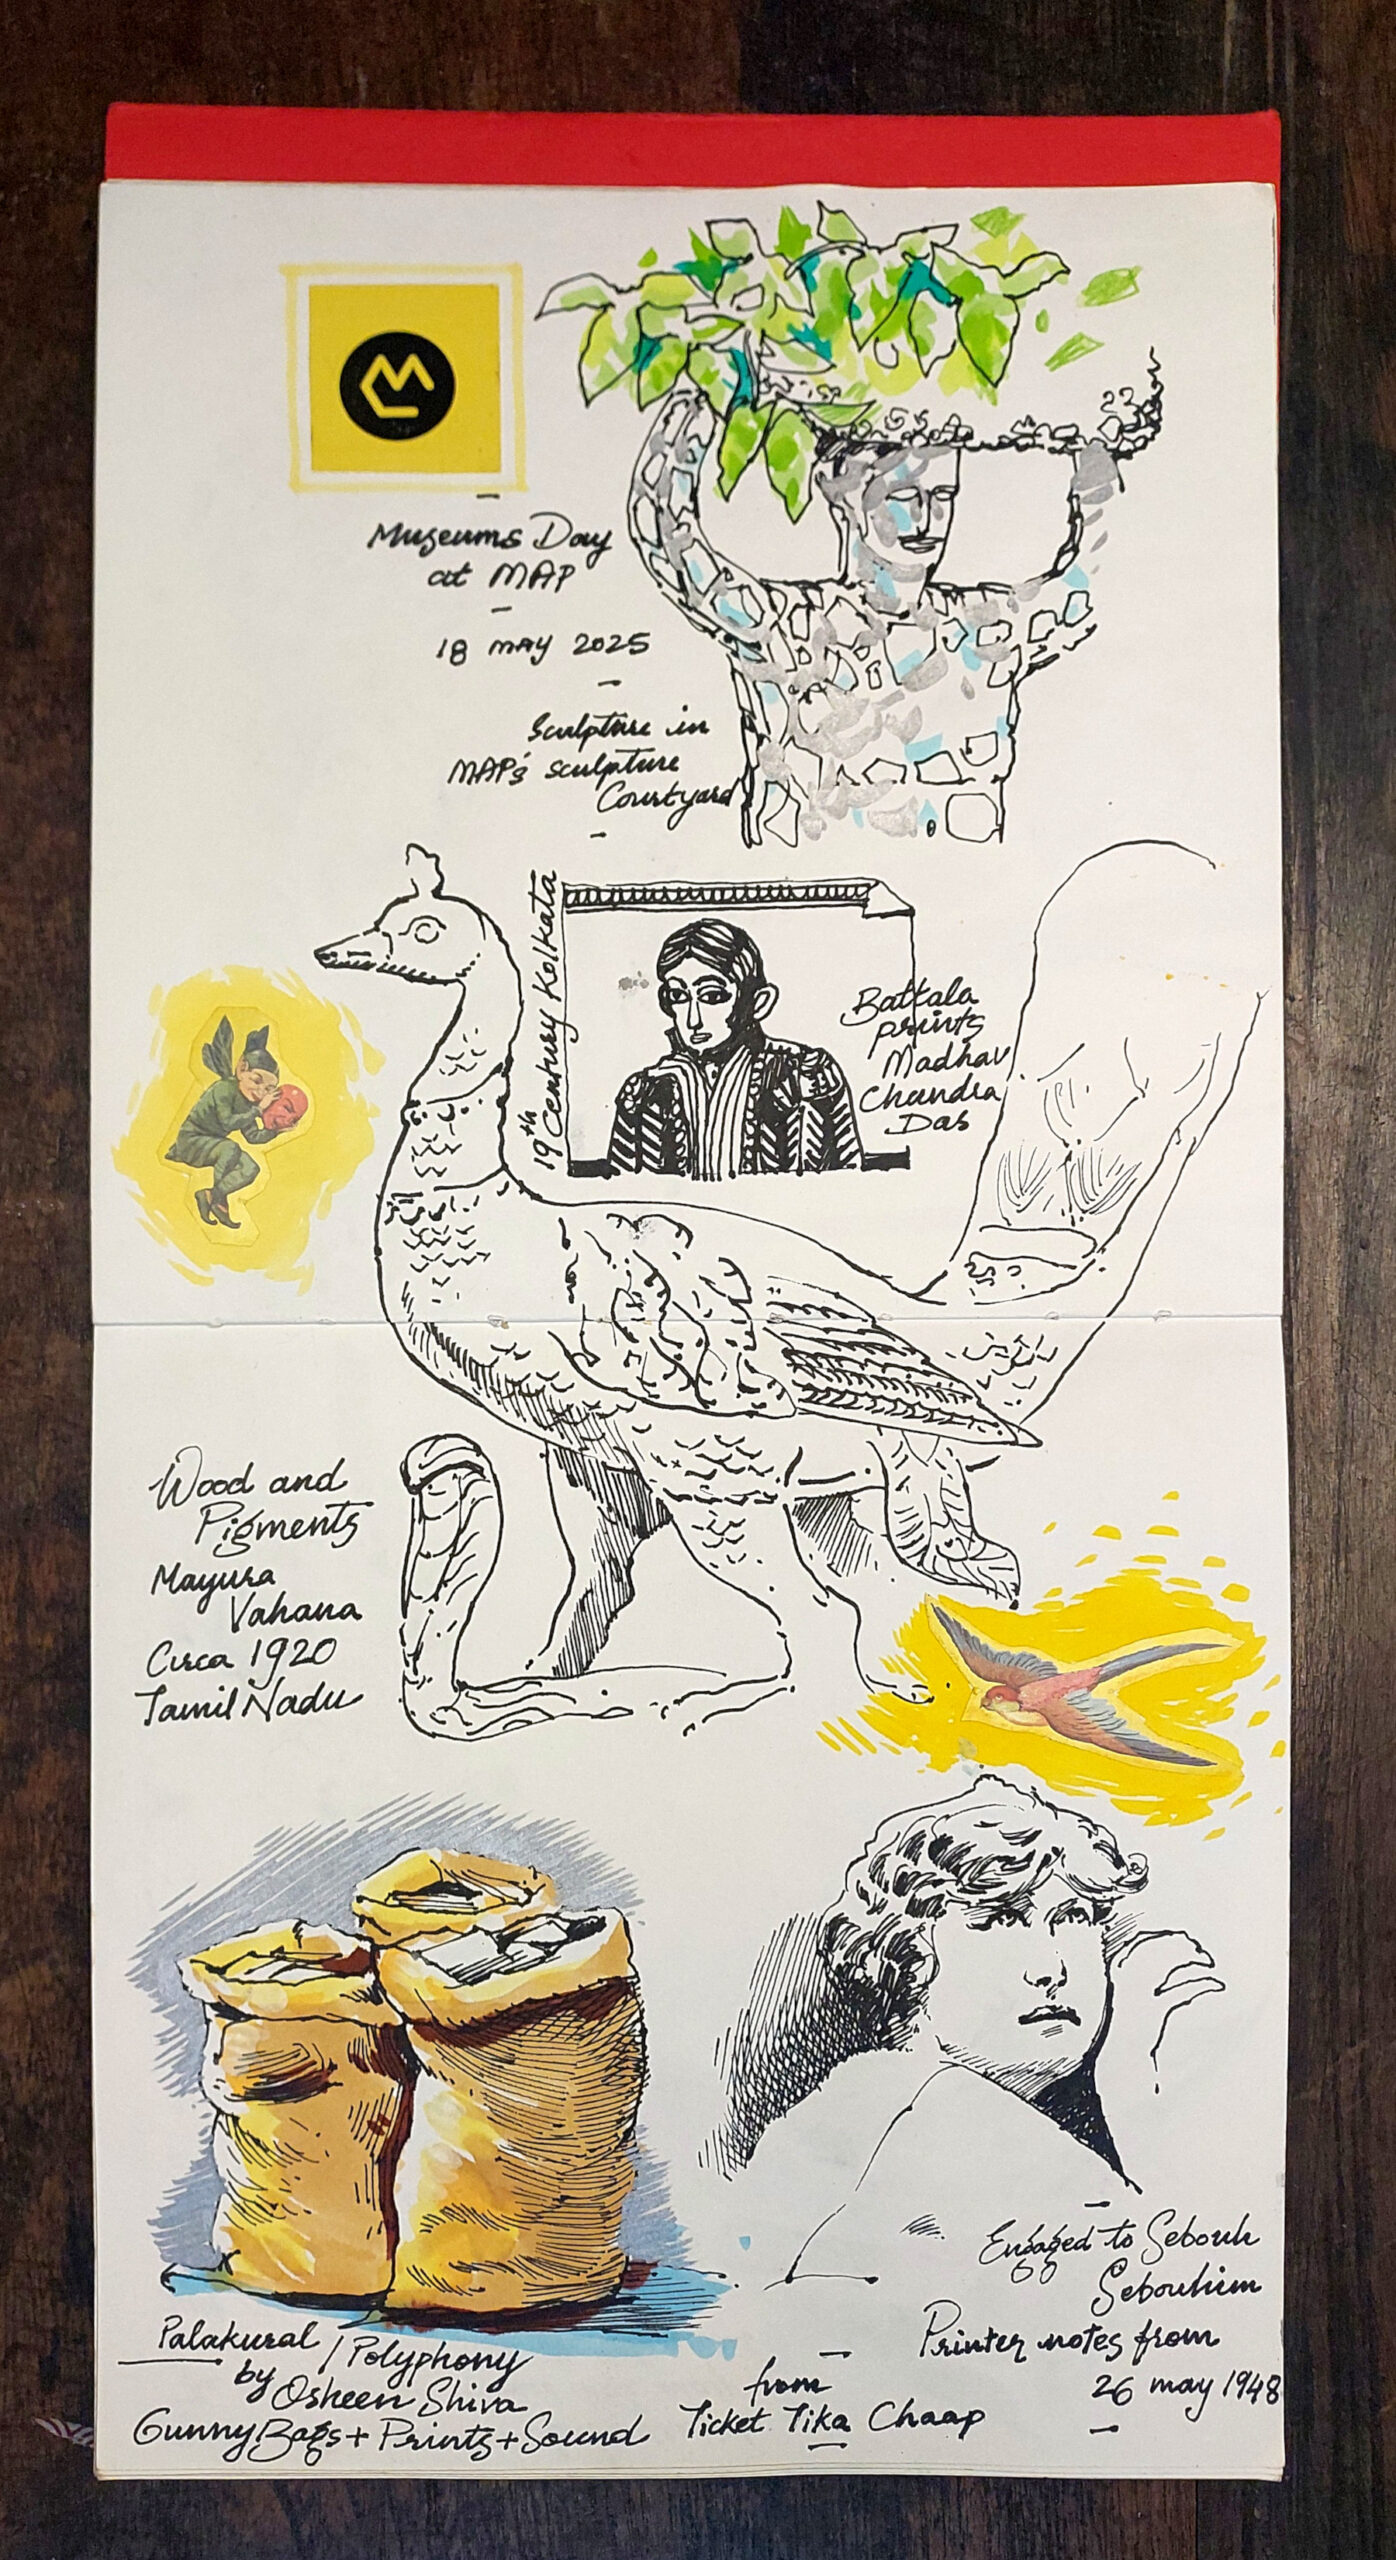 Museums Day
at MAP
18 MAY 2025
Sculpture in
MAP's sculpture
Courtyard
19th Century Kolkata
Battala
prints
Madhav
Chandra
Das
Wood and
Pigments
Mayura
Vahana
Circa 1920
Tamil Nadu
Palakural / Polyphony
by Osheen Shiva
Gunny Bags + Prints + Sound
Engaged to Sebouh
Sebouhian
Printer notes from
26 may 1948
from
Ticket Tika Chaap